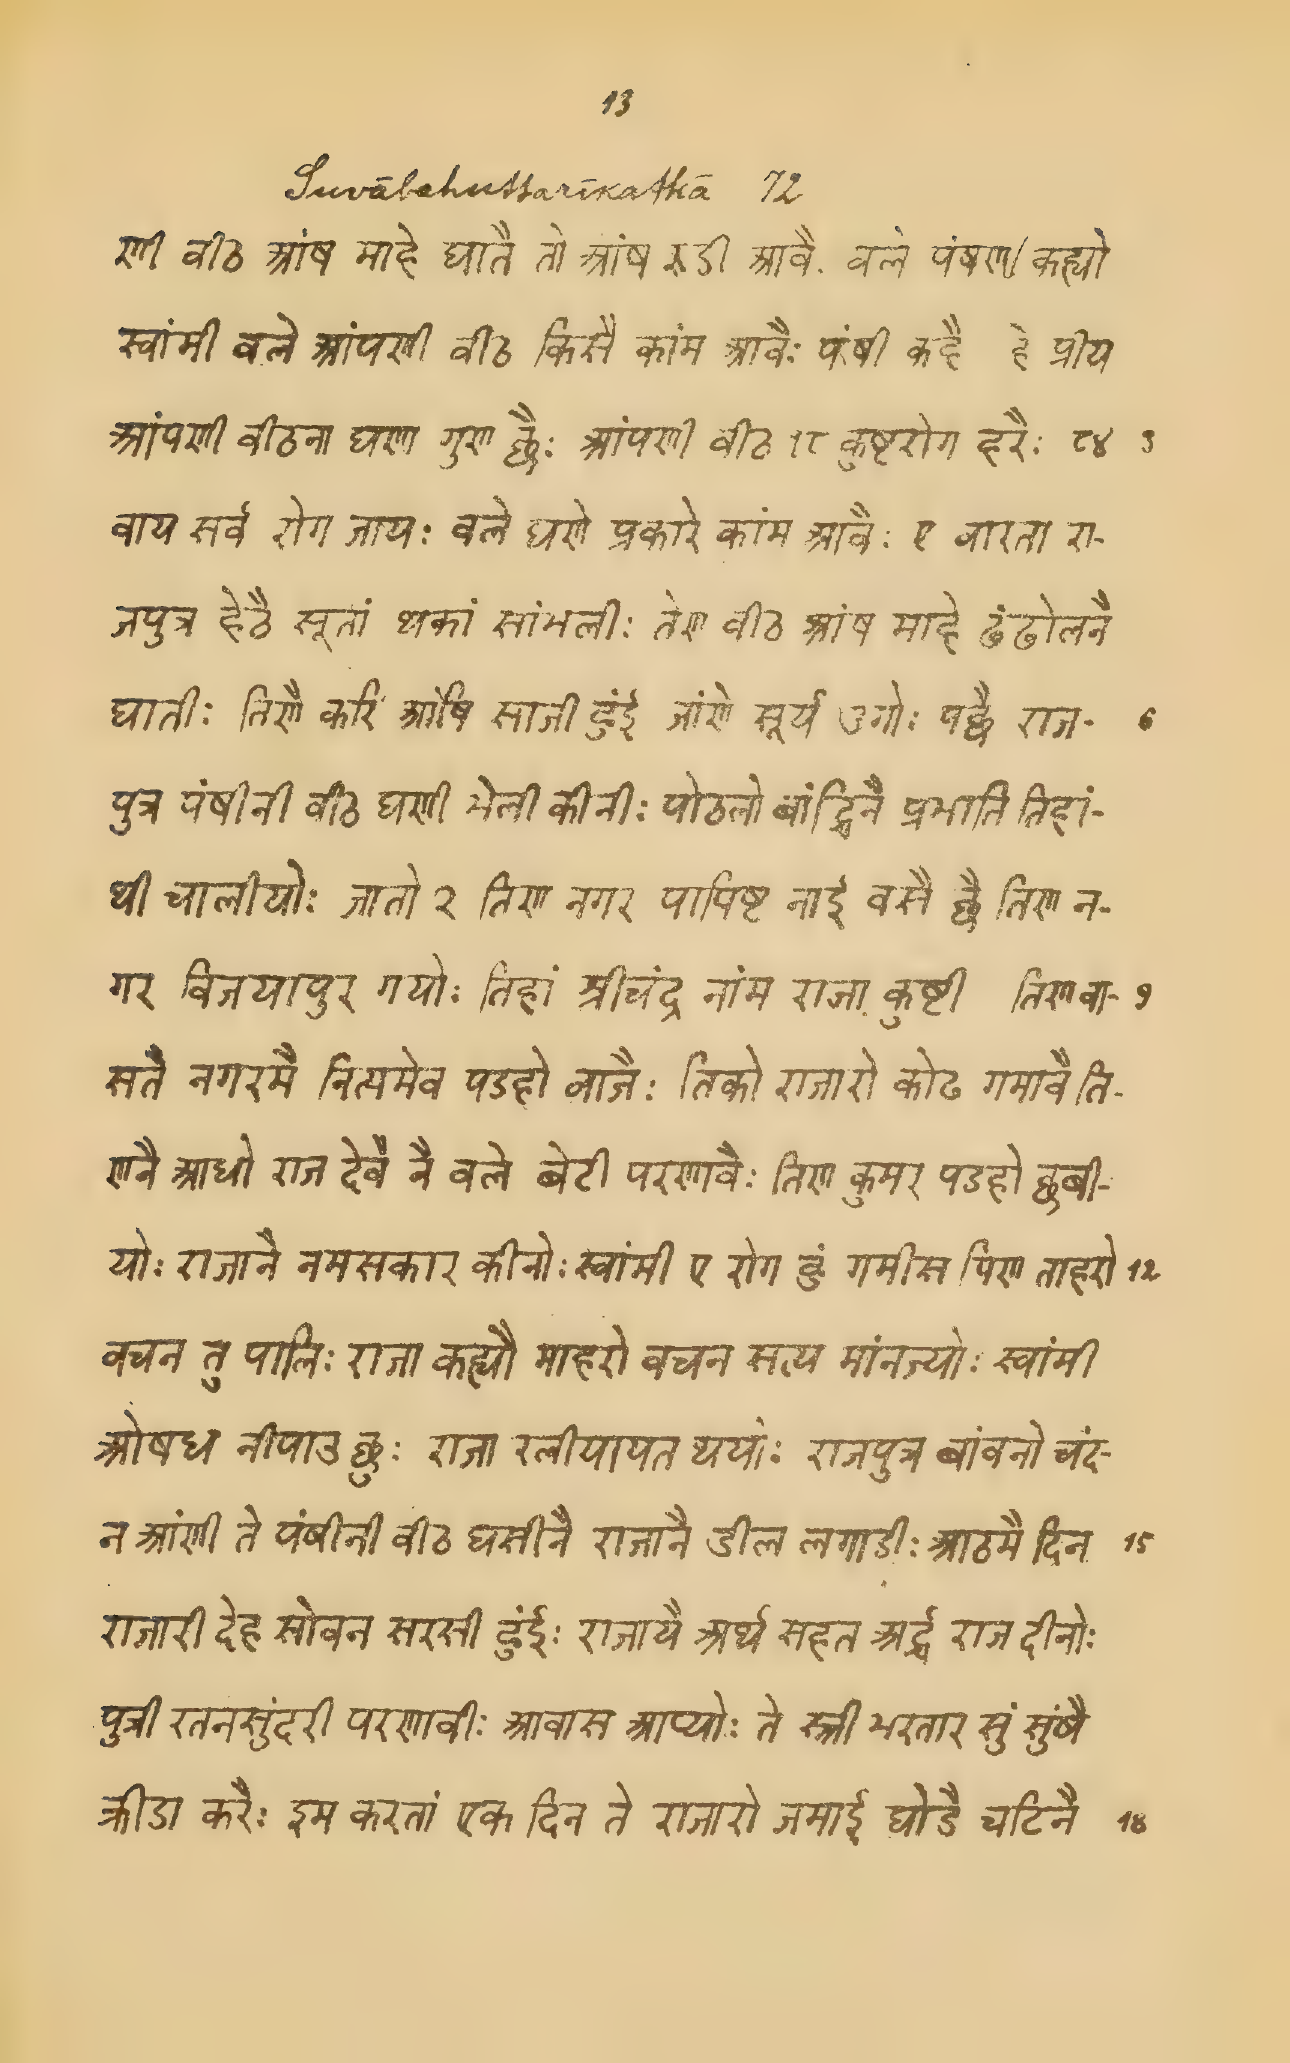 13
Suvābahuttarīkathā 72
णी वीठ आंष माहे घातै तो आंष रुडी आवै. वले पंषणी कह्यो
स्वांमी वले आंपणी वीठ किसै कांम आवैः पंषी कहै हे प्रीय
आंपणी वीठना घणा गुण छैः आंपणी वीठ १८ कुष्टरोग हरैः ८४ 3
वाय सर्व रोग जायः वले घणे प्रकारे कांम आवैः ए वारता रा-
जपुत्र हेठै सूतां थकां सांभलीः तेण वीठ आंष माहे ढंढोलनै
घातीः तिणै करि आंषि साजी हुंई जांणे सूर्य उगोः पछै राज- 6
पुत्र पंषीनी वीठ घणी भेली कीनीः पोठलो बांद्धिनै प्रभाति तिहां-
थी चालीयोः जातो २ तिण नगर पापिष्ट नाई वसै छै तिण न-
गर विजयापुर गयोः तिहां श्रीचंद्र नांम राजा कुष्टी तिण वा- 9
सतै नगरमै नित्यमेव पडहो वाजैः तिको राजारो कोढ गमावै ति-
णनै आधो राज देवै नै वले बेटी परणावैः तिण कुमर पडहो छबी-
योः राजानै नमसकार कीनोः स्वांमी ए रोग हुं गमीस पिण ताहरो 12
वचन तु पालिः राजा कह्यौ माहरो वचन सत्य मांनज्योः स्वांमी
ओषध नीपाउ छुः राजा रलीयायत थयोः राजपुत्र बांवनो चंद-
न आंणी ते पंषीनी वीठ घसीनै राजानै डील लगाडीः आठमै दिन 15
राजारी देह सोवन सरसी हुंईः राजायै अर्थ सहत अर्द्ध राज दीनोः
पुत्री रतनसुंदरी परणावीः आवास आप्योः ते स्त्री भरतार सुं सुंषै
क्रीडा करैः इम करतां एक दिन ते राजारो जमाई घोडै चटिनै 18